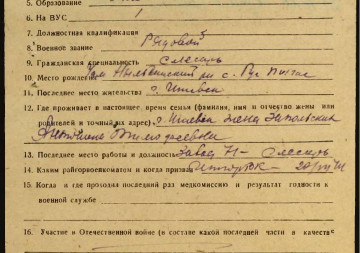 5. Образование
6. На ВУС 1
7. Должностная квалификация
8. Военное звание Рядовой
9. Гражданская специальность Слесарь
10. Место рождения с. Рус Пычас
11. Последнее место жительства г. Ижевск
12. Где проживает в настоящее время семья (фамилия, имя и отчество жены или
родителей и точный адрес) г. Ижевск
Тимофеевна
13. Последнее место работы и должность завод 71 - Слесарь
14. Каким райгорвоенкоматом и когда призван
15. Когда и где проходил последний раз медкомиссию и результат годности к
военной службе
16. Участие в Отечественной войне (в составе какой последней части в качестве